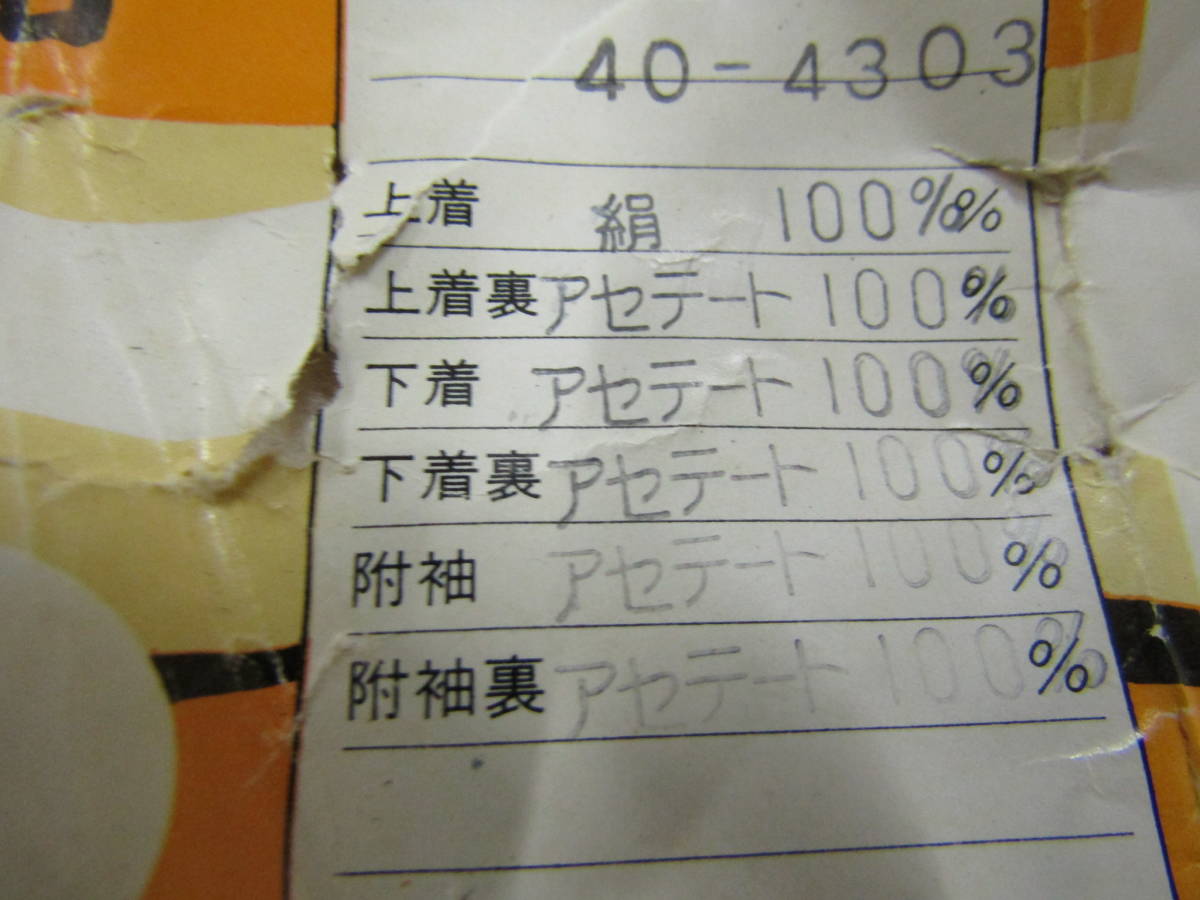 40-4303
上着 絹 100%%
上着裏 アセテート 100%
下着 アセテート 100%
下着裏 アセテート 100%
附袖 アセテート 100%
附袖裏 アセテート 100%